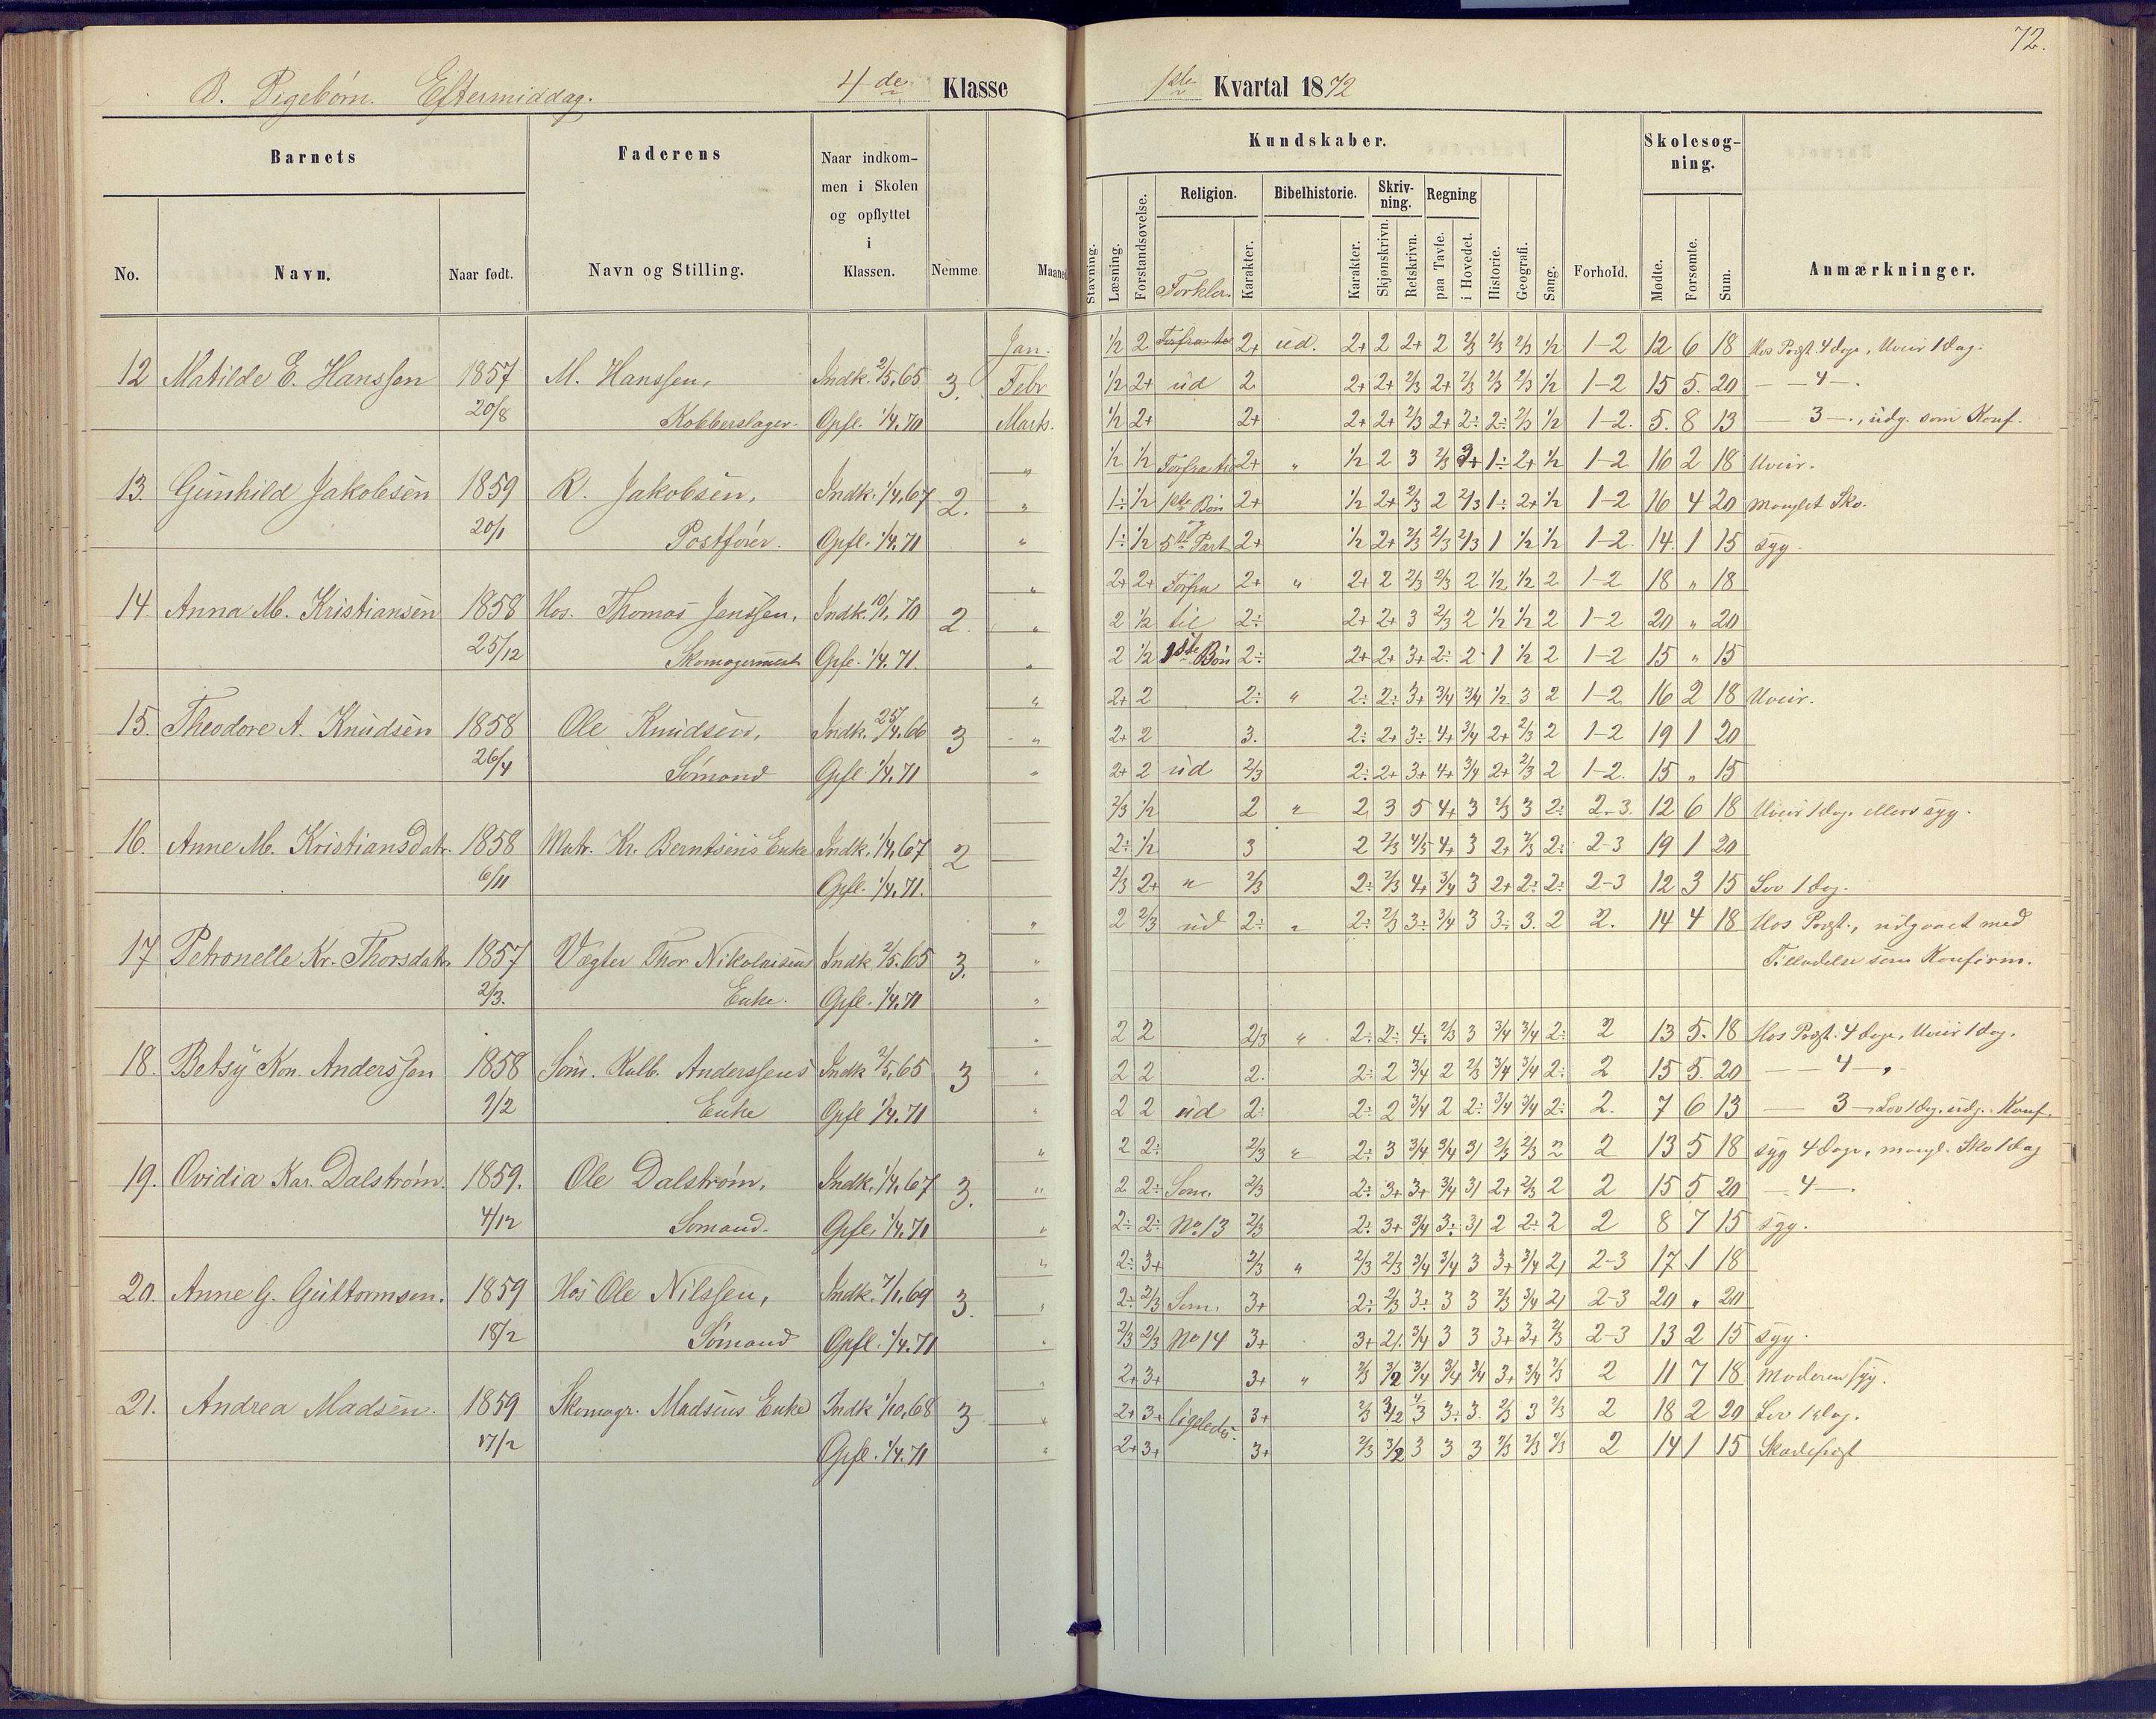 72.
B. Pigebørn. Eftermiddag. 4de Klasse 1ste Kvartal 1872
Barnets Faderens Naar indkommen i Skolen og opflyttet i Klassen. Nemme Maaned
No. Navn. Naar født. Navn og Stilling.
Kundskaber. Forhold. Skolesøgning. Anmærkninger.
Stavning. Læsning. Forstandsøvelse. Religion. Forklar. Karakter. Bibelhistorie. Karakter. Skrivning. Skjønskrivn. Retskrivn. Regning paa Tavle. i Hovedet. Historie. Geografi. Sang. Mødte. Forsømte. Sum.
Jan. 1/2 2 2+ ud. 2+ 2 2+ 2 2/3 2/3 2/3 1/2 1-2 12 6 18 Hos Præst. 4 dage, Uveir 1 dag.
12 Matilde E. Hanssen 1857 M. Hanssen, Indk. 2/5.65 3. Febr 1/2 2+ ud 2 2+ 2+ 2/3 2+ 2/3 2/3 2/3 1/2 1-2 15 5. 20 — 4 —.
20/8 Kobberslager. Opfl. 1/4.70 Marts. 1/2 2+ 2+ 2+ 2+ 2/3 2+ 2÷ 2÷ 2/3 1/2 1-2. 5. 8 13 — 3 —., udg. som Konf.
" 1/2 1/2 Forfra til 2+ " 1/2 2 3 2/3 2+ 1÷ 2+ 1/2 1-2 16 2 18 Uveir.
13. Gunhild Jakobsen 1859 R. Jakobsen, Indk. 1/4.67 2. " 1÷ 1/2 1ste Bøn 2+ 1/2 2+ 2/3 2 2/3 1÷ 2+ 1/2 1-2 16 4 20 manglet Sko.
20/1 Postfører. Opfl. 1/4.71 " 1÷ 1/2 5te Part 2+ 1/2 2+ 2/3 2/3 2/3 1 1/2 1/2 1-2. 14. 1 15 syg.
" 2+ 2+ Forfra 2+ " 2+ 2 2/3 2/3 2 1/2 1/2 2 1-2 18 " 18
14. Anna M. Kristiansen 1858 Hos. Thomas Janssen, Indk. 10/1.70 2. " 2 1/2 til 2÷ 2+ 2+ 3 2/3 2 1/2 1/2 2 1-2 20 " 20
25/12 Skomagermest Opfl. 1/4.71. " 2 1/2 1ste Bøn 2÷ 2+ 2+ 3+ 2÷ 2 1 1/2 2 1-2 15 " 15
" 2+ 2 2÷ " 2÷ 2÷ 3+ 3/4 3/4 1/2 3 2 1-2 16 2 18 Uveir.
15. Theodore A. Knudsen 1858 Ole Knudsen, Indk. 25/4.66 3 " 2+ 2 3. 2÷ 2+ 3÷ 4+ 3/4 2+ 2/3 2 1-2 19 1 20
26/4 Sømand Opfl. 1/4.71 " 2+ 2 ud 2/3 2÷ 2+ 3+ 4+ 3/4 2+ 2/3 2 1-2. 15 " 15
2/3 1/2 2 " 2 3 5 4+ 3 2/3 3 2÷ 2-3. 12 6 18 Uveir 1 dag. ellers syg.
16. Anne M. Kristiansdatr. 1858 Matr. Kr. Berntsens Enke Indk. 1/4.67 2 2÷ 1/2 3 2 2/3 4/5 4+ 3 2+ 2/3 2÷ 2-3 19 1 20
6/11 Opfl. 1/4.71. 2/3 2+ " 2/3 2÷ 2/3 4+ 3/4 3 2+ 2÷ 2÷ 2-3 12 3 15 Lov 1 dag.
" 2 2/3 ud 2÷ " 2÷ 2/3 3÷ 3/4 3 3÷ 3. 2 2. 14 4 18 Hos Præst., udgaaet med
17 Petronelle Kr. Thorsdatr. 1857 Vægter Thor Nikolaisens Indk. 2/5.65 3. " Tilladelse som Konfirm.
2/3. Enke. Opfl. 1/4.71 "
" 2 2 2/3 " 2÷ 2÷ 4÷ 2/3 3 3/4 3/4 2÷ 2 13 5. 18 Hos Præst. 4 dage, Uveir 1 dag.
18. Betsy Kon. Anderssen 1858 Søm. Kalb. Anderssens Indk 2/5.65 3 " 2 2 2. 2÷ 2 3/4 2 2/3 3/4 3/4 2÷ 2 15 5. 20 — 4 —.
1/2 Enke Opfl 1/4.71 " 2 2 ud 2÷ 2÷ 2 3/4 2 2÷ 3/4 3/4 2÷ 2. 7 6 13 — 3 — Lov 1 dag. udg. Konf.
" 2 2÷ 2/3 " 2÷ 3 3/4 3/4 3/ 2/3 2/3 2 2 13 5 18 syg 4 dage, mangl. Sko 1 dag
19. Ovidia Kar. Dalstrøm. 1859. Ole Dalstrøm, Indk. 1/4.67 3. " 2 2÷ Som. 2/3 2÷ 3+ 3+ 3/4 3/ 2+ 2/3 2 2 15 5 20 — 4 —.
4/12 Sømand. Opfl. 1/4.71 " 2÷ 2÷ No 13 2/3 2÷ 3+ 3/4 3÷ 3/ 2 2÷ 2 2 8 7 15 syg.
" 2÷ 3+ 2/3 " 2/3 2/3 3/4 3/4 3 3+ 3/4 2/ 2-3 17 1 18
20. Anne G. Guttormsen. 1859 Hos Ole Nilssen, Indk. 7/1.69 3. " 2÷ 2/3 Som. 3+ 2÷ 2/3 3÷ 3 3 2/3 3/4 2/ 2-3 20 " 20
18/2 Sømand Opfl. 1/4.71 " 2/3 2/3 No 14 3+ 3+ 2/. 3/4 3 3 3+ 3+ 2/3 2-3 13 2 15 syg.
" 2+ 3+ 3+ " 2/3 3/2 3/4 3/4 3/4 3+ 3/4 2/3 2 11 7 18 Moderen syg.
21. Andrea Madsen. 1859 Skomagr. Madsens Enke Indk 1/10.68 3 " 2+ 3+ ligeledes. 3+ 2/3 3 3÷ 3. 2/3 3 2/3 2 18 2 20 Lov 1 dag.
17/2 Opfl. 1/4.71 " 2+ 3+ 3+ 2/3 3/2 3 3 3 2/3 2/3 2/3 2 14 1 15